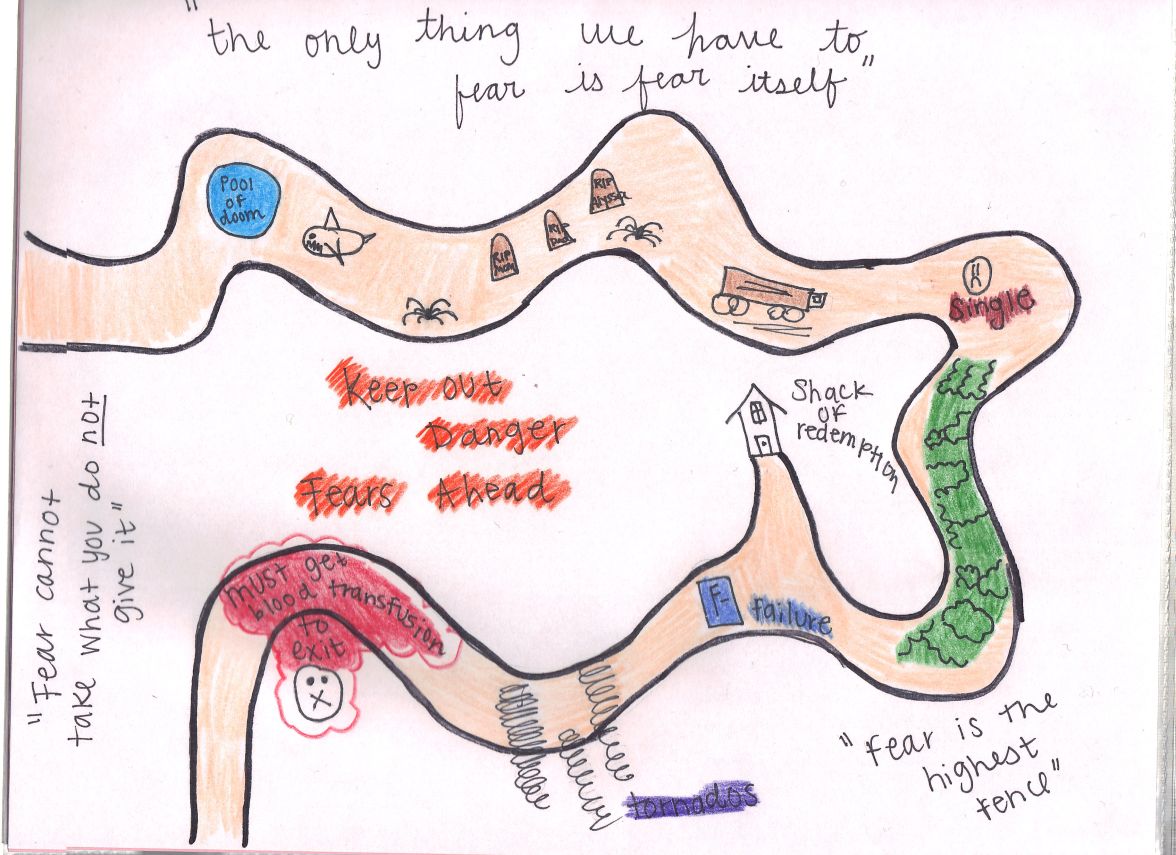 "the only thing we have to
fear is fear itself"
Pool
of
doom
RIP
Mom
RIP
Dad
RIP
Alyssa
Single
Keep out
Danger
Fears Ahead
Shack
of
redemption
"Fear cannot
take what you do not
give it"
must get
blood transfusion
to
exit
F-
Failure
tornados
"fear is the
highest
fence"